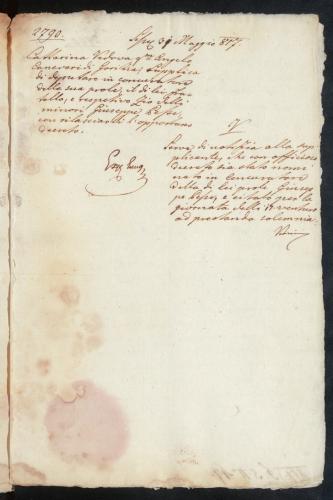 2790.
31 Maggio 817.
Cattarina Vedova qm Angelo
Canevari di supplica
di deputare in concuratore
della sua prole, il di lei fra-
tello, e respettivo Zio delli
minori Giuseppe
con rilasciarli l'opportuno
decreto.
Serva di notizia alla sup-
plicante, che con officioso
decreto fu stato nomi-
nato in concuratore
della di lei prole, Giusep-
pe e citato per la
giornata delli 17 venturo
ad prestando solemnia.